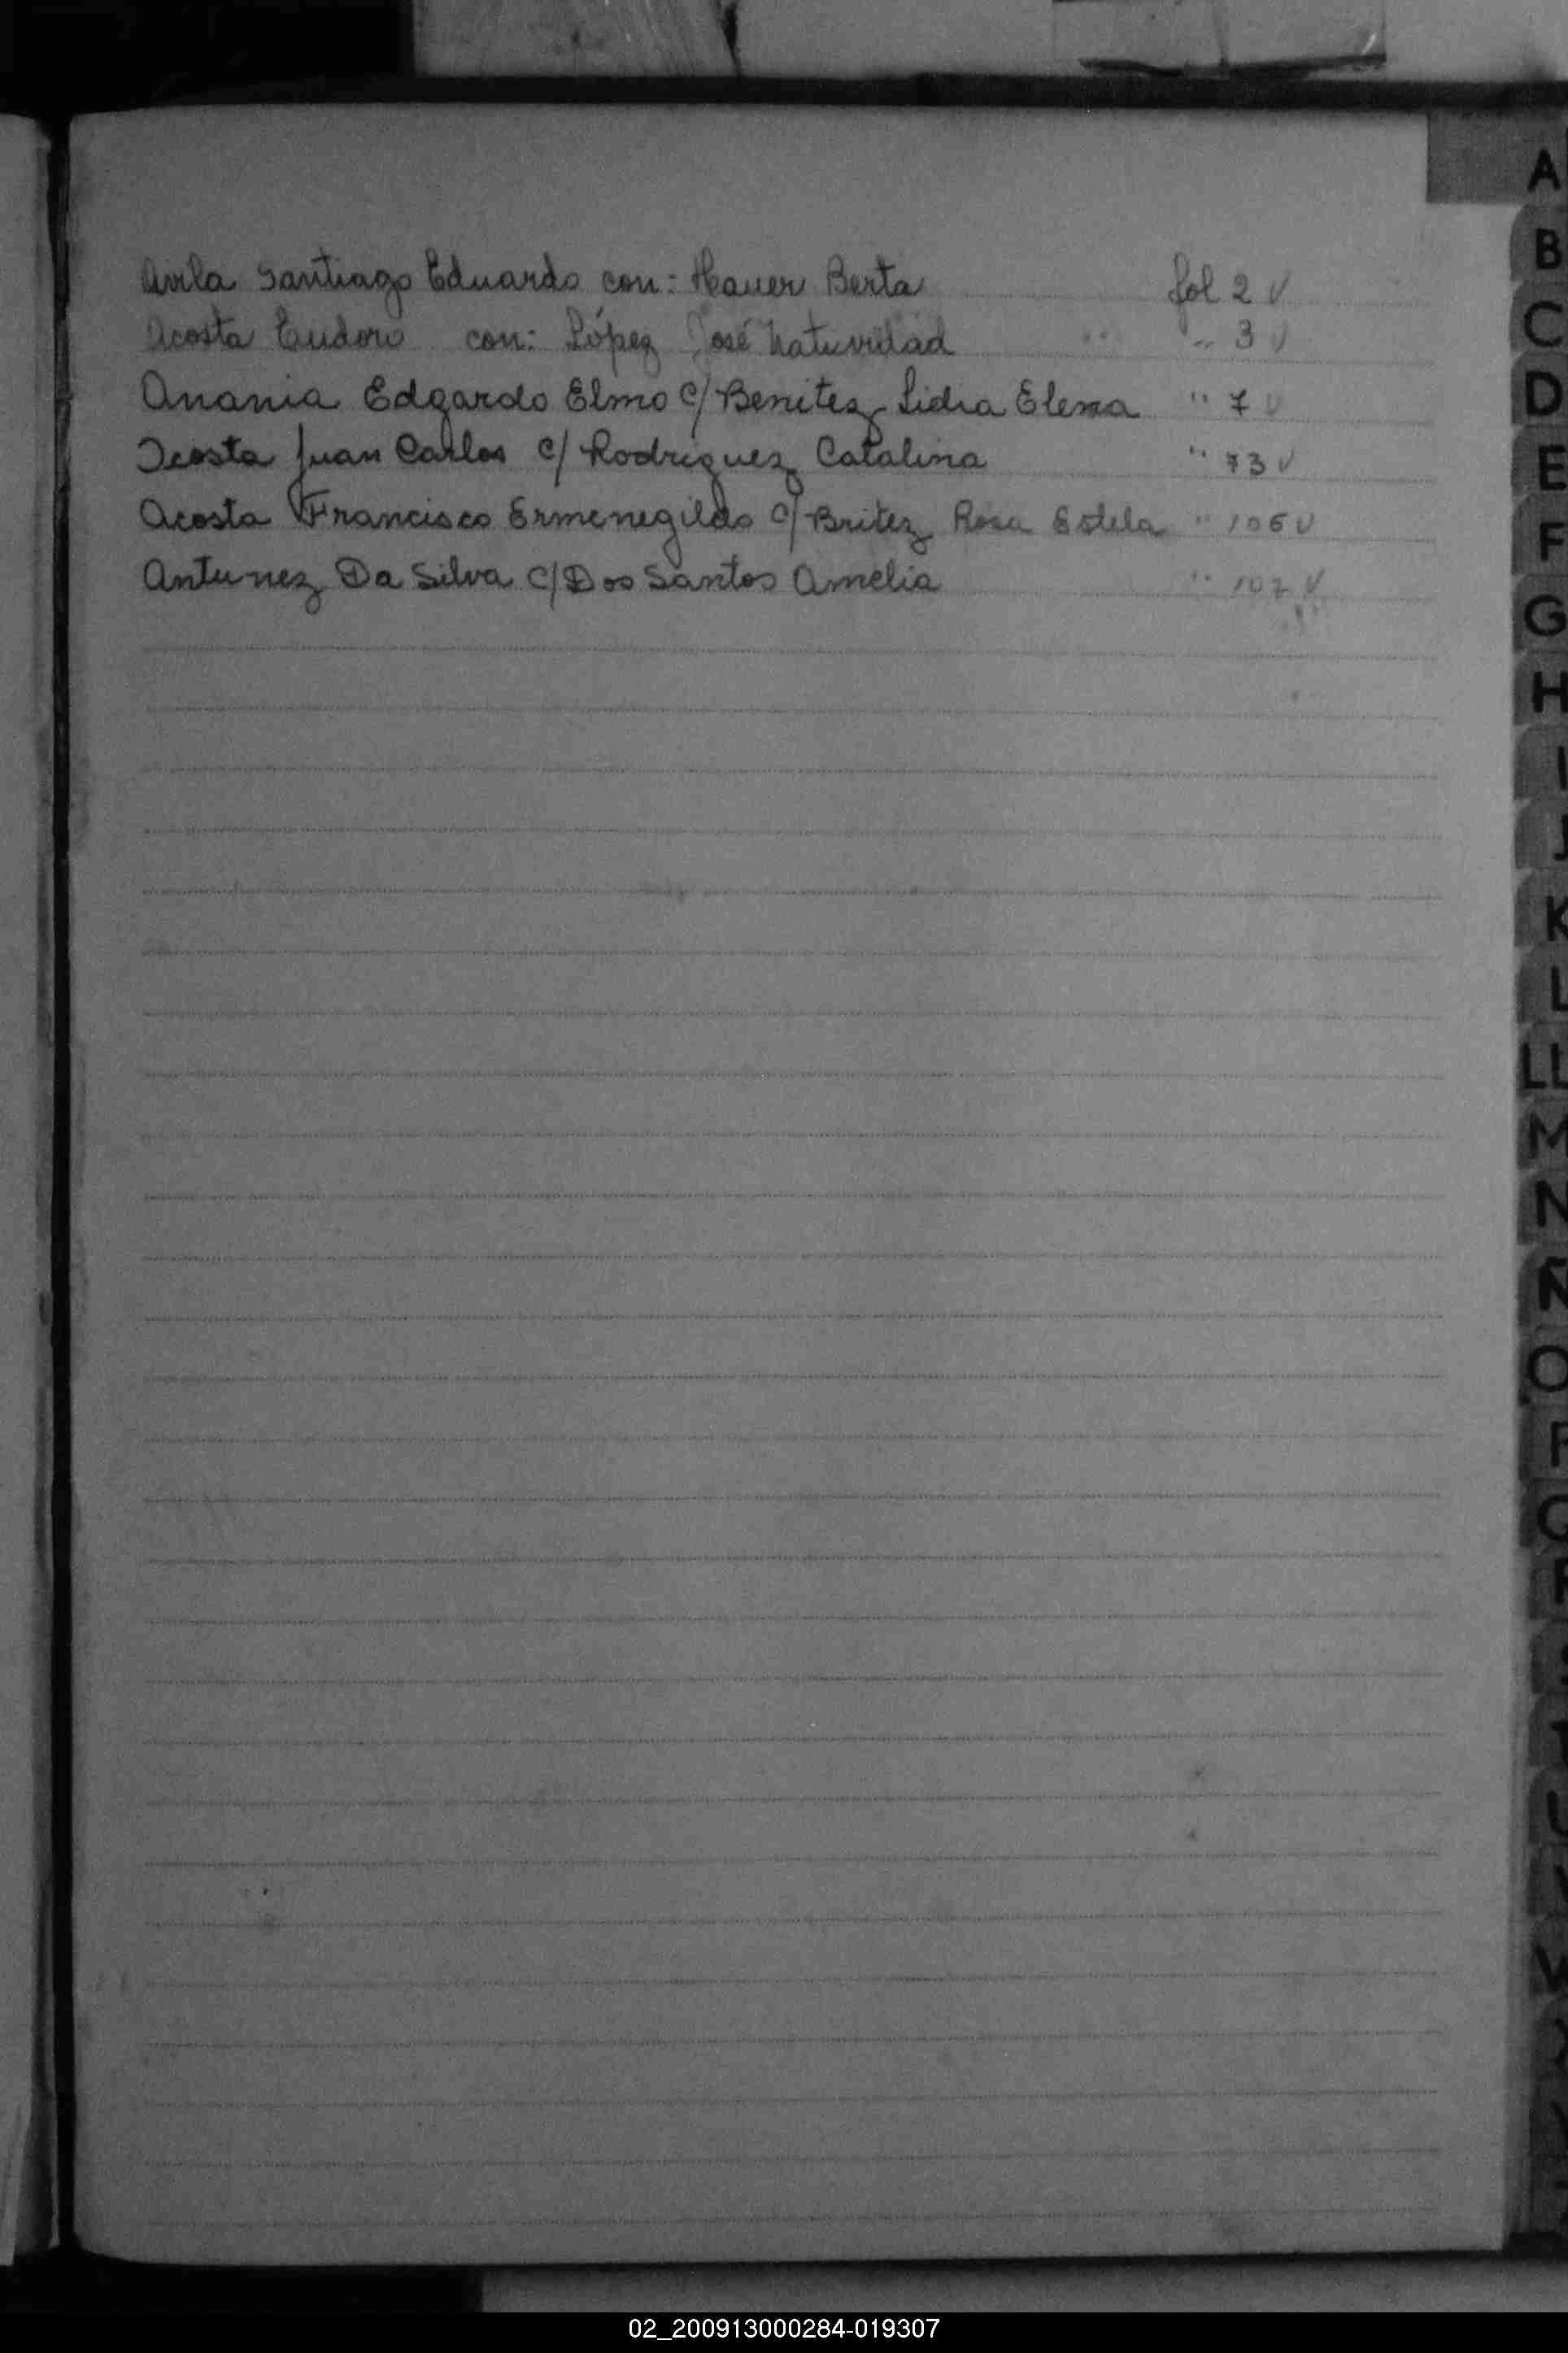 Avila Santiago Eduardo con: Hauer Berta fol 2 V
Acosta Eudoro con: López José Natividad " 3 V
Anania Edgardo Elmo c/ Benitez Lidia Elena " 7 V
Acosta Juan Carlos c/ Rodriguez Catalina " 73 V
Acosta Francisco Ermenegildo c/ Britez Rosa Estela " 106 V
Antunez Da Silva c/ Dos Santos Amelia " 107 V
A
B
C
D
E
F
G
H
I
J
K
L
LL
M
N
Ñ
O
P
Q
R
02_200913000284-019307